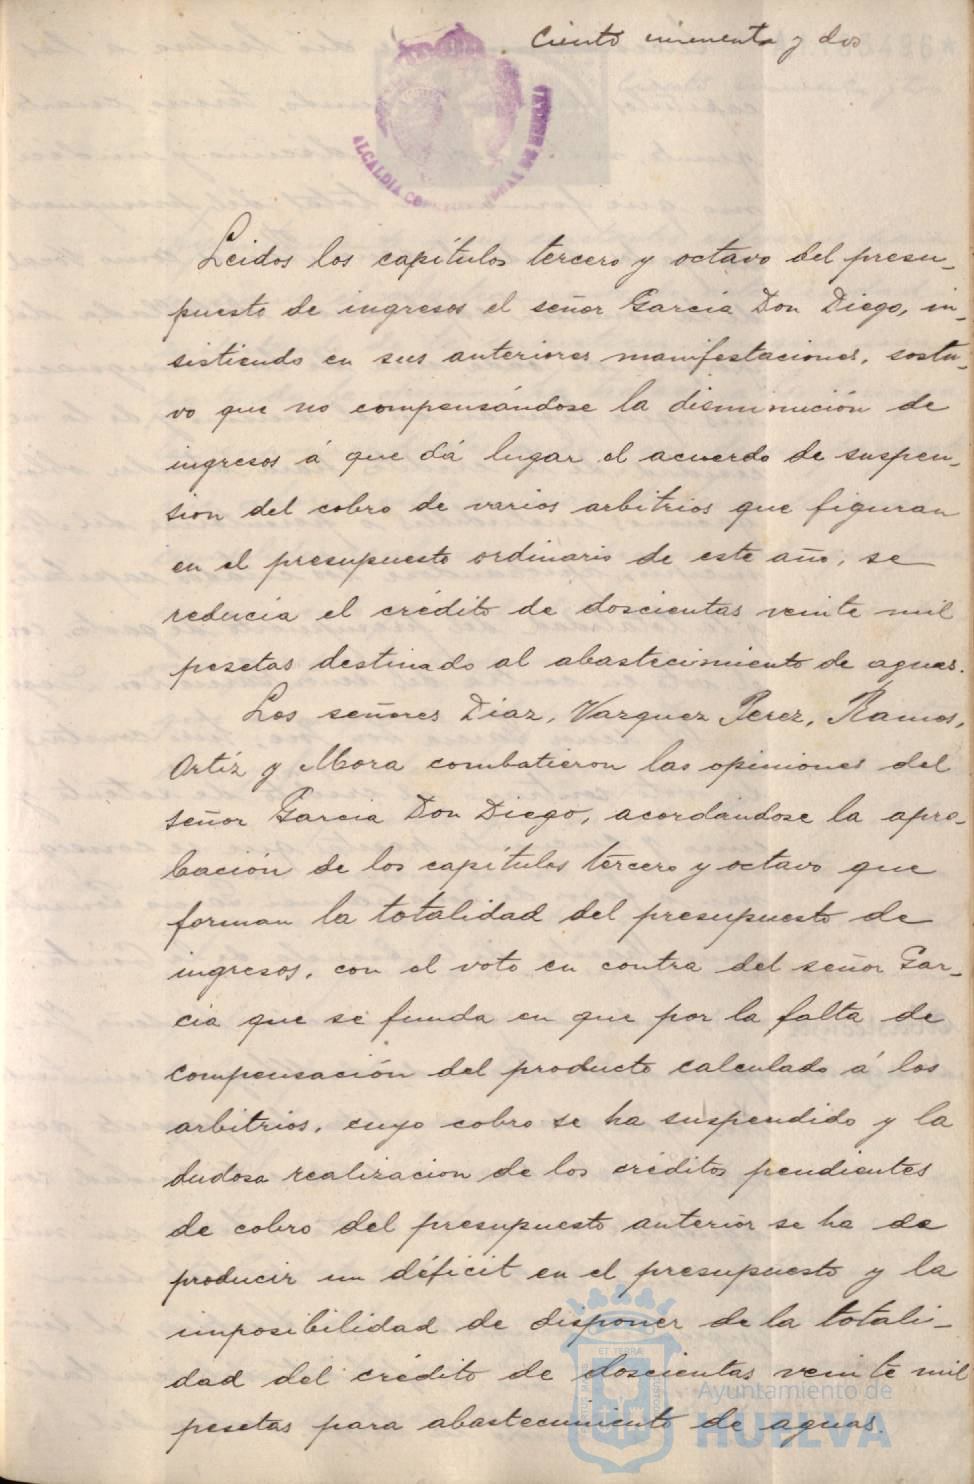 Ciento cincuenta y dos
ALCALDIA CONSTITUCIONAL DE HUELVA
Leidos los capítulos tercero y octavo del presu-
puesto de ingresos el señor Garcia Don Diego, in-
sistiendo en sus anteriores manifestaciones, sostu-
vo que no compensándose la disminución de
ingresos á que dá lugar el acuerdo de suspen-
sion del cobro de varios arbitrios que figuran
en el presupuesto ordinario de este año, se
reducia el crédito de doscientas veinte mil
pesetas destinado al abastecimiento de aguas.
Los señores Diaz, Vazquez Perez, Ramos,
Ortíz y Mora combatieron las opiniones del
señor Garcia Don Diego, acordándose la apro-
bación de los capítulos tercero y octavo que
forman la totalidad del presupuesto de
ingresos, con el voto en contra del señor Gar-
cia que se funda en que por la falta de
compensación del producto calculado á los
arbitrios, cuyo cobro se ha suspendido y la
dudosa realizacion de los créditos pendientes
de cobro del presupuesto anterior se ha de
producir un déficit en el presupuesto y la
imposibilidad de disponer de la totali-
dad del crédito de doscientas veinte mil
pesetas para abastecimiento de aguas.
ET TERRA
Ayuntamiento de
HUELVA